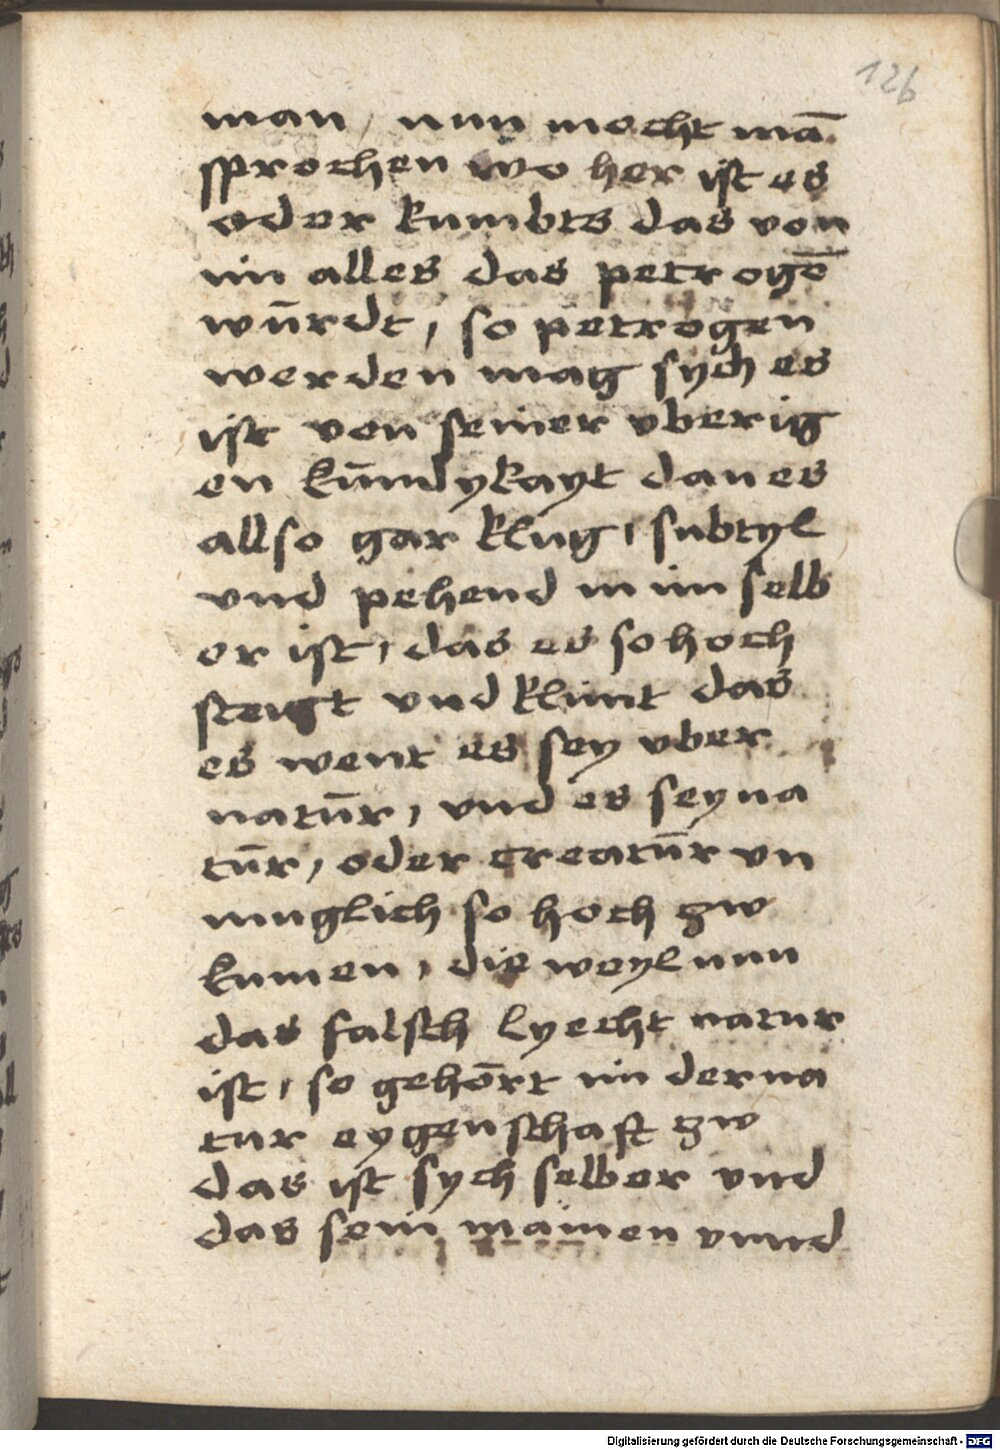 126
man, nun mocht mā
sprochen wo her ist es
oder kumbts das von
im alles das petrogē
wūrdt, so petrogen
werden mag sych es
ist von seiner vberig
en kūndykayt dan es
allso gar klug, subtyl
vnd pehend in im selb
er ist, das es so hoch
steigt vnd klimt das
es went es sey vber
natūr, vnd es sey na
tūr, oder creatūr vn
muglich so hoch zw
kumen, die weyl nun
das falsch lyecht natur
ist, so gehōrt im der na
tur eygenschaft zw
das ist sych selber vnd
das sein mainen vnnd
Digitalisierung gefördert durch die Deutsche Forschungsgemeinschaft - DFG